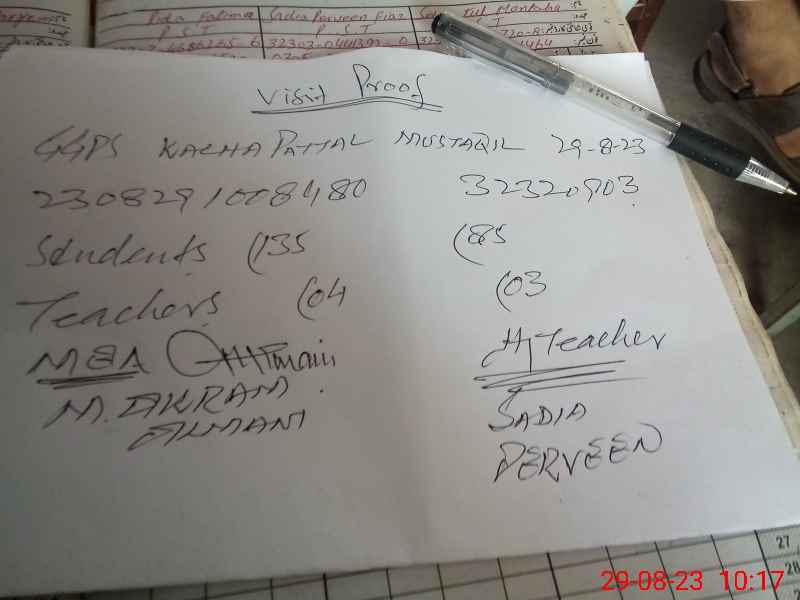 Rida Fatima Sadia Parveen Fiaz
P S T P S T
Visit Proof
GGPS KACHA PATTAL MUSTAQIL 29-8-23
2308291008480 32320903
Students (135 (85
Teachers (04 (03
MEA
H/Teacher
M. AKRAM
SADIA
PERVEEN
27
28
29-08-23 10:17